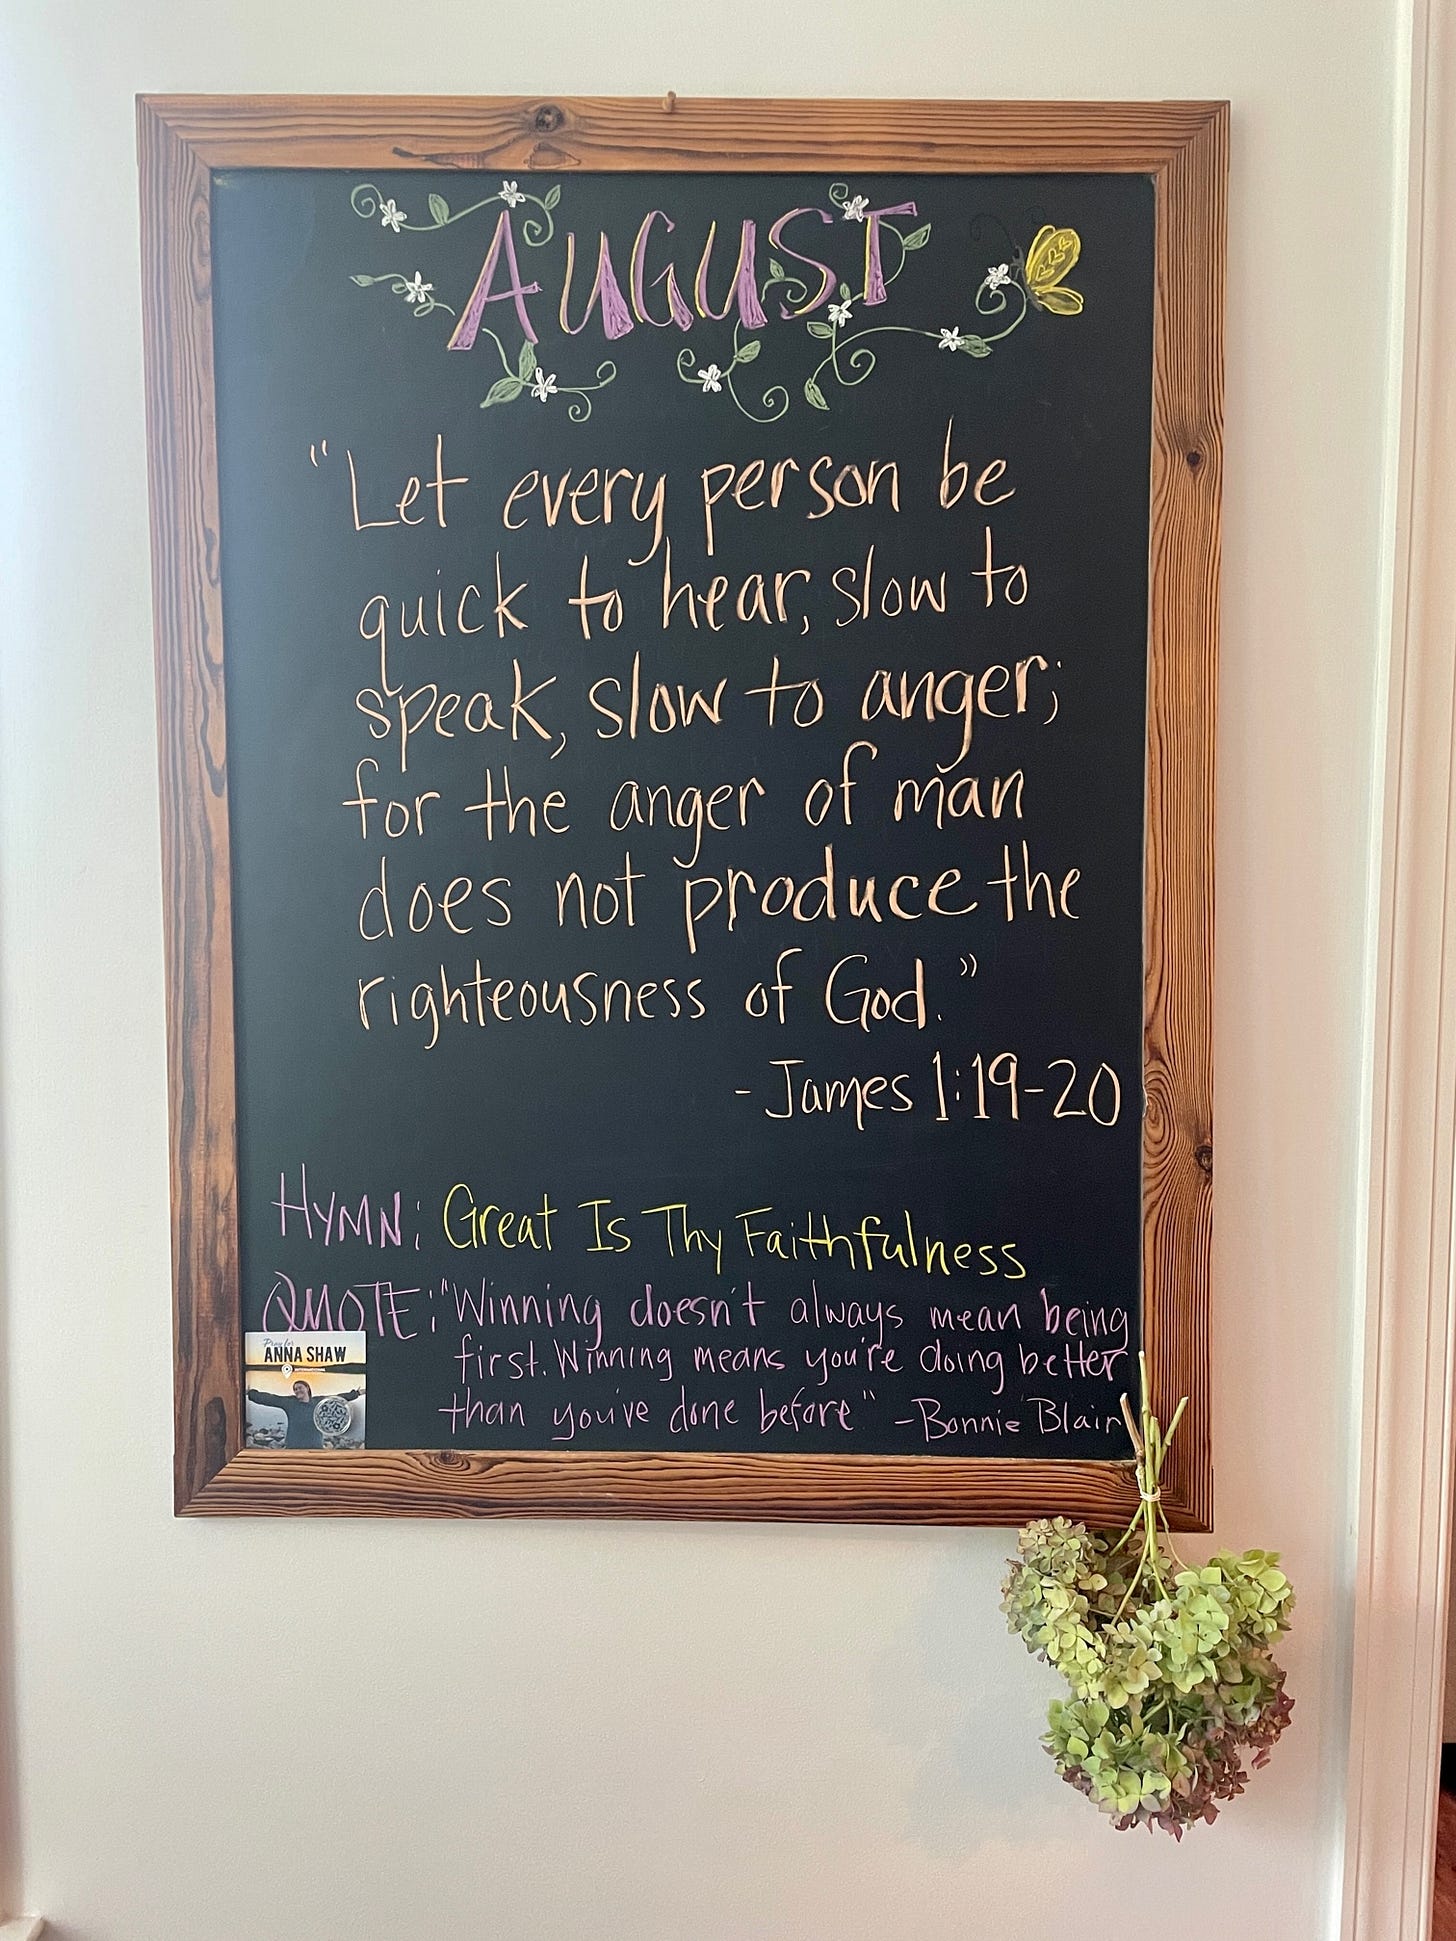 AUGUST
"Let every person be
quick to hear, slow to
speak, slow to anger;
for the anger of man
does not produce the
righteousness of God."
-James 1:19-20
HYMN: Great Is Thy Faithfulness
QUOTE: "Winning doesn't always mean being
first. Winning means you're doing better
than you've done before" -Bonnie Blair
Pray for
ANNA SHAW
INTERNATIONAL